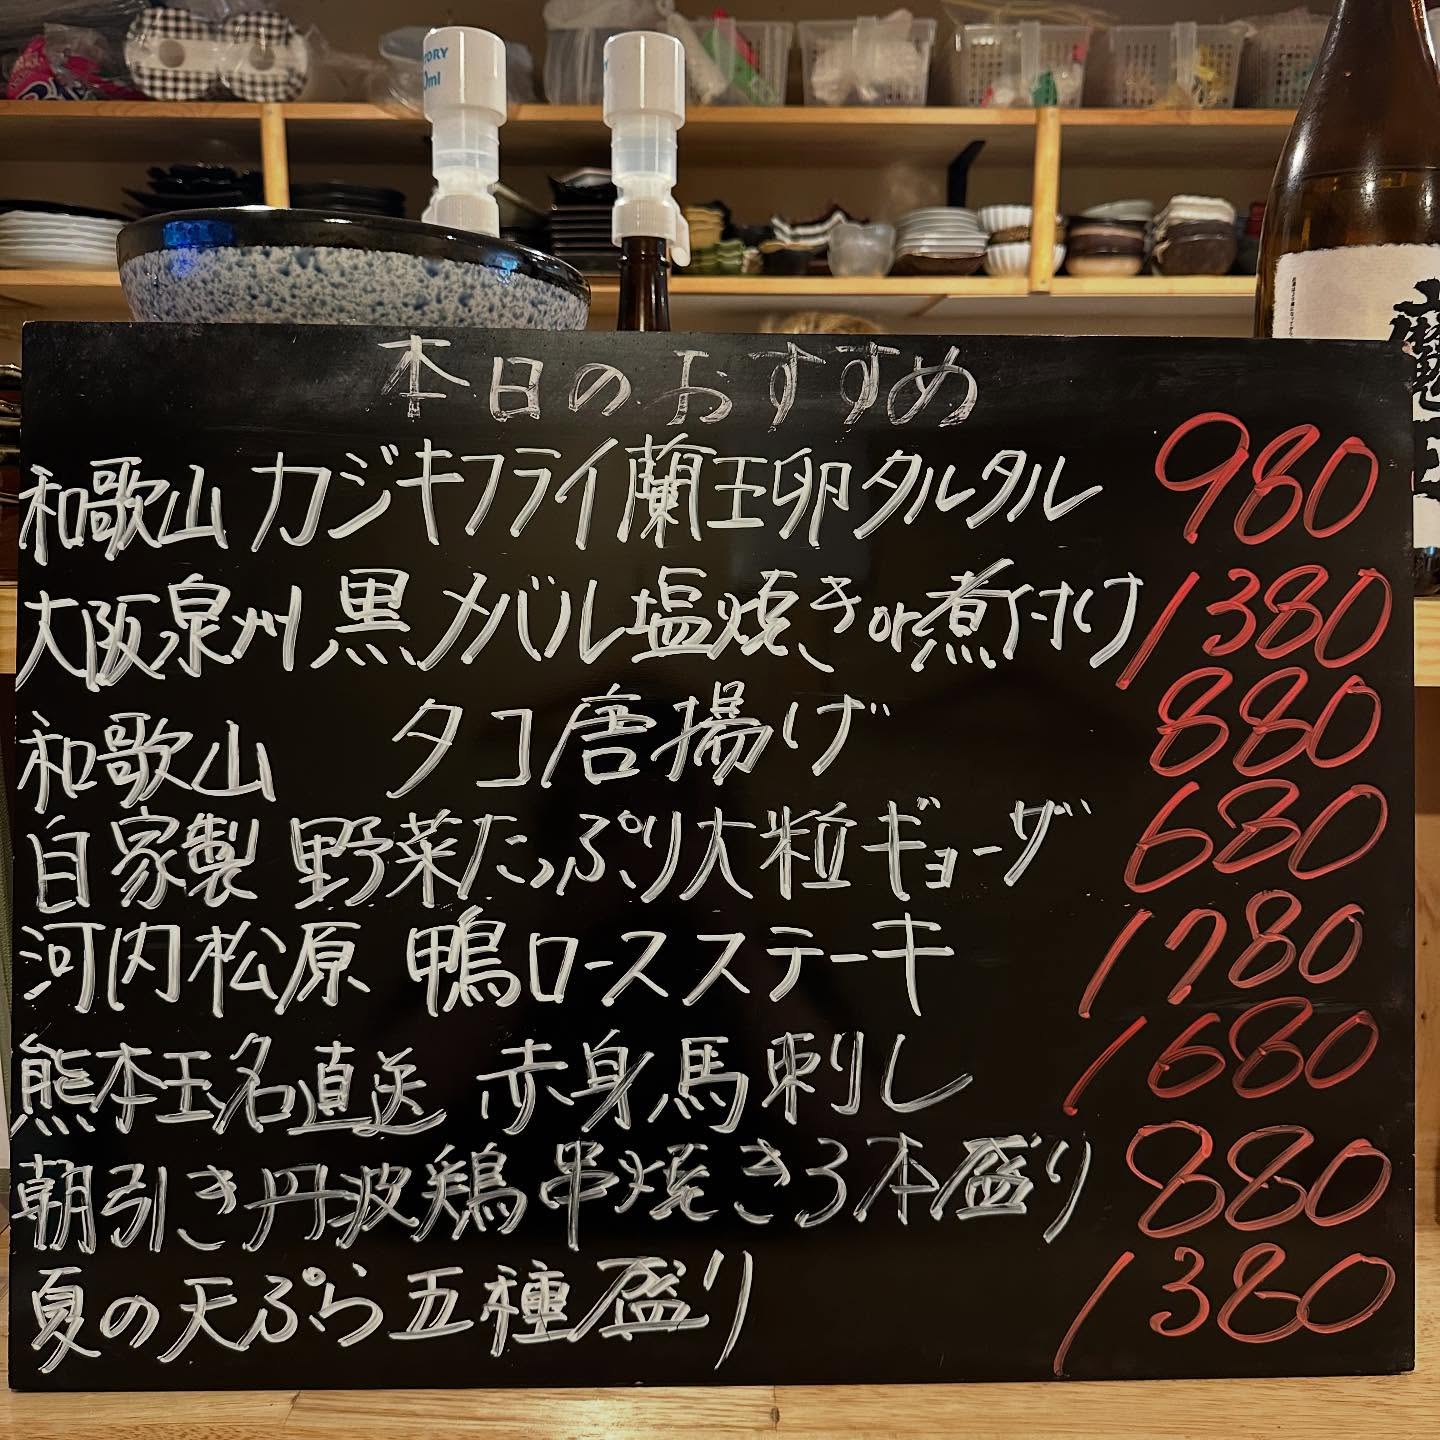 TORY
0ml
本日のおすすめ
和歌山 カジキフライ蘭王卵タルタル 980
大阪泉州 黒メバル塩焼きor煮付け 1380
和歌山 タコ唐揚げ 880
自家製 野菜たっぷり大粒ギョーザ 680
河内松原 鴨ロースステーキ 1780
熊本玉名直送 赤身馬刺し 1680
朝引き丹波鶏串焼き3本盛り 880
夏の天ぷら五種盛り 1380